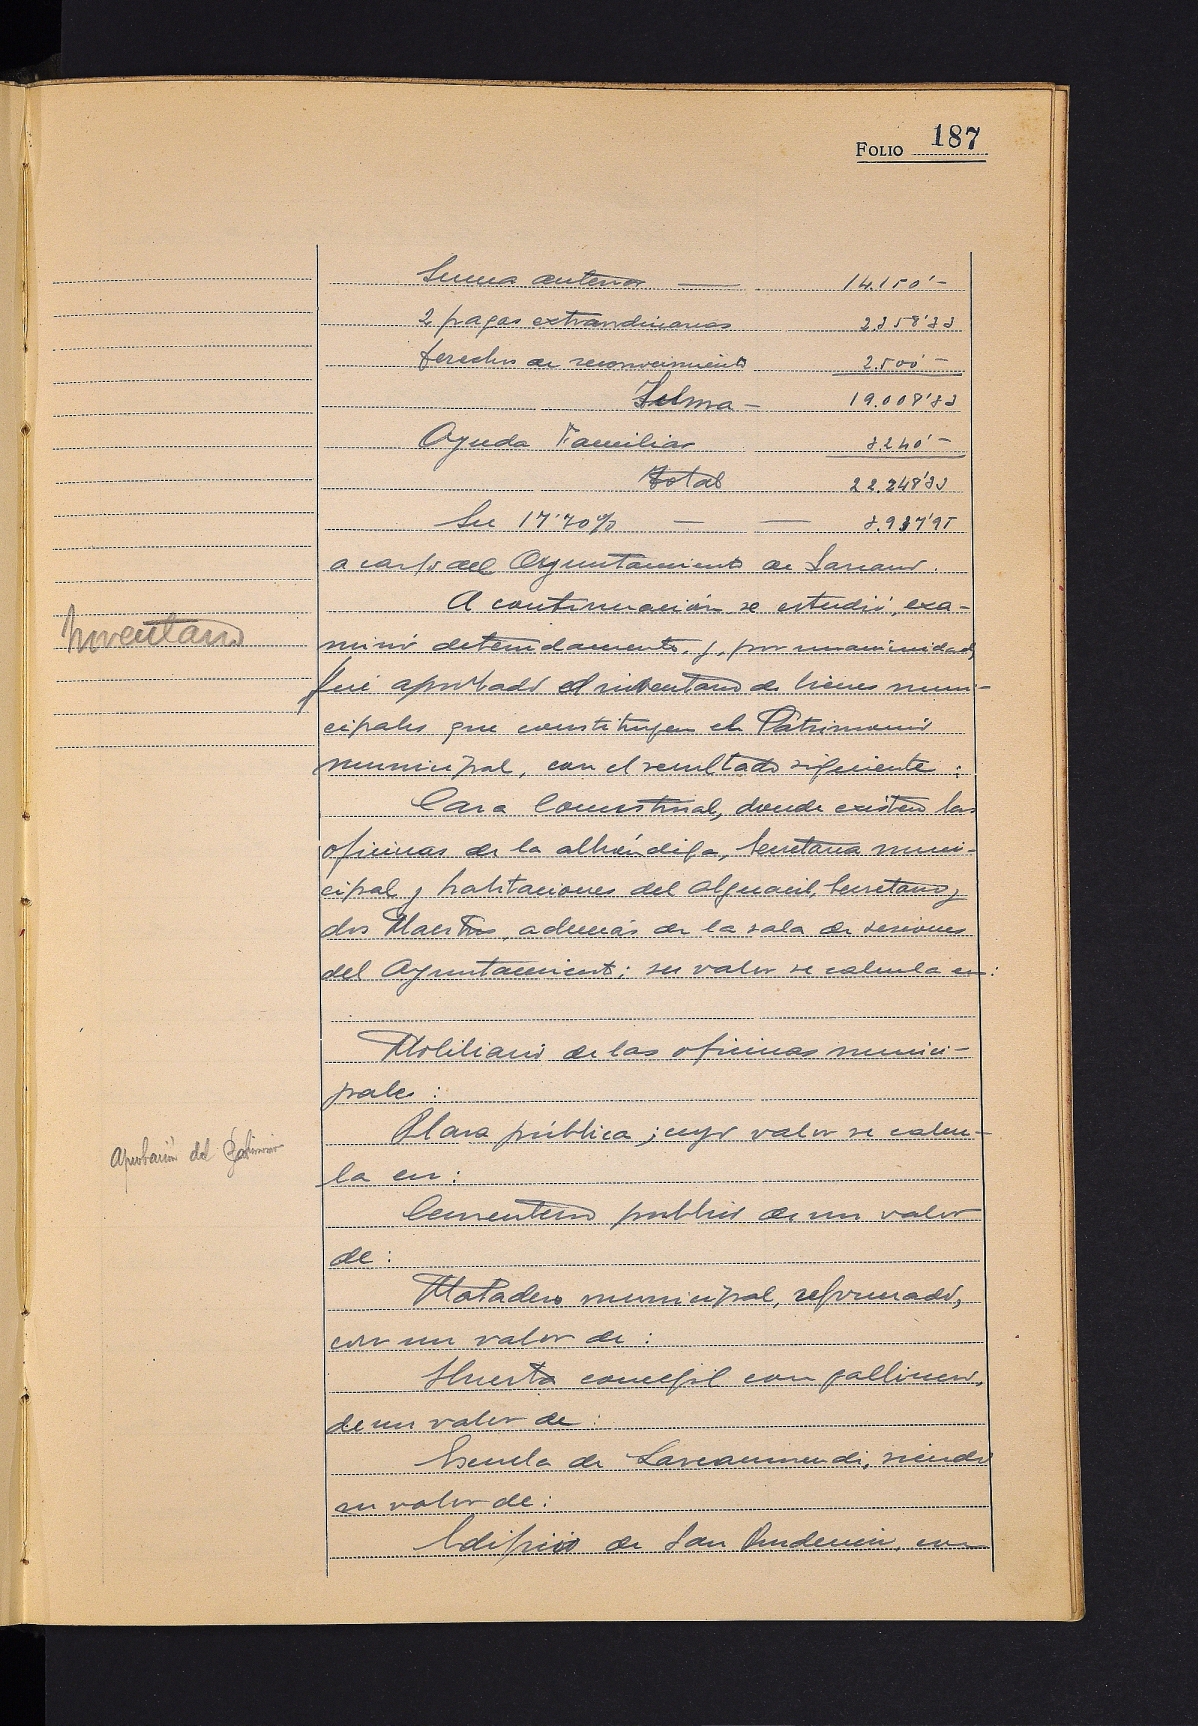 FOLIO 187
Suma anterior — 14.150'-
2 pagas extraordinarias 2.358'33
Derechos de reconocimiento 2.500'-
Suma - 19.008'33
Ayuda Familiar 3.240'-
Total 22.248'33
Su 17'70% — — 3.937'95
a cargo del Ayuntamiento de Larcano.
A continuación se estudió, exa-
Inventario
minó detenidamente, y, por unanimidad,
fué aprobado el inventario de bienes muni-
cipales que constituyen el Patrimonio
municipal, con el resultado siguiente:
Casa Consistorial, donde existen las
oficinas de la alhóndiga, Secretaria muni-
cipal y habitaciones del alguacil, Secretario y
dos Maestros, además de la sala de sesiones
del Ayuntamiento; su valor se calcula en:
Mobiliario de las oficinas munici-
pales:
Plaza pública; cuyo valor se calcu-
Aprobación del Patrimonio
la en:
Cementerio público de un valor
de:
Matadero municipal, reformado,
con un valor de:
Huerta concejil con gallinero,
de un valor de:
Escuela de Larcanmendi, siendo
su valor de:
Edificio de San Prudencio, con